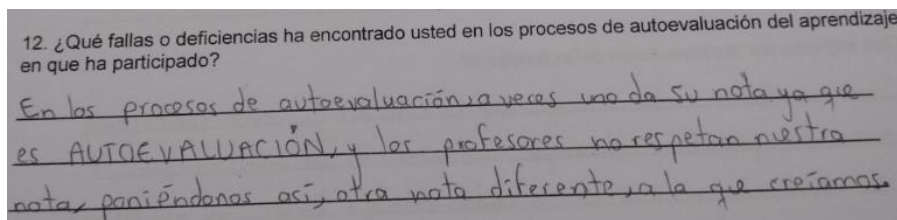 12. ¿Qué fallas o deficiencias ha encontrado usted en los procesos de autoevaluación del aprendizaje
en que ha participado?
En los procesos de autoevaluación, a veces uno da su nota ya que
es AUTOEVALUACIÓN, y los profesores no respetan nuestra
nota, poniéndonos así, otra nota diferente, a la que creíamos.